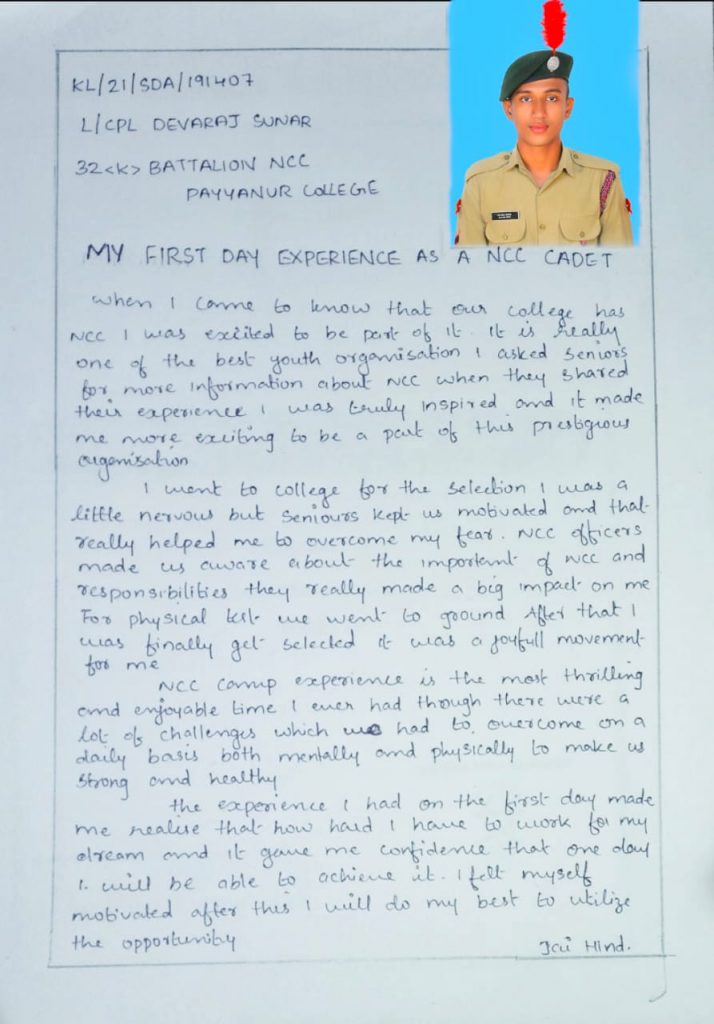 KL/21/SDA/191407
L/CPL DEVARAJ SUNAR
32<K> BATTALION NCC
PAYYANUR COLLEGE
MY FIRST DAY EXPERIENCE AS A NCC CADET
When I came to know that our college has
NCC I was excited to be part of it. It is really
one of the best youth organisation I asked seniors
for more information about NCC when they shared
their experience I was truly inspired and it made
me more exciting to be a part of this prestigious
organisation
I went to college for the selection I was a
little nervous but seniours kept us motivated and that
really helped me to overcome my fear. NCC officers
made us aware about the important of NCC and
responsibilities they really made a big impact on me
For physical test we went to ground After that I
was finally get selected it was a joyfull movement
for me
NCC camp experience is the most thrilling
and enjoyable time I ever had though there were a
lot of challenges which we had to overcome on a
daily basis both mentally and physically to make us
strong and healthy
the experience I had on the first day made
me realise that how hard I have to work for my
dream and it gave me confidence that one day
I will be able to achieve it. I felt myself
motivated after this I will do my best to utilize
the opportunity
Jai Hind.